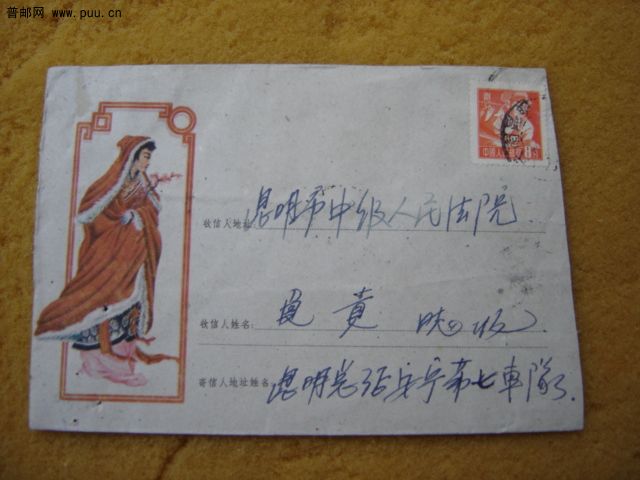 普邮网 www.puu.cn
中国人民邮政 8分
收信人地址: 昆明市中级人民法院
收信人姓名: 貴 收
寄信人地址姓名: 昆明总站安宁第七車隊